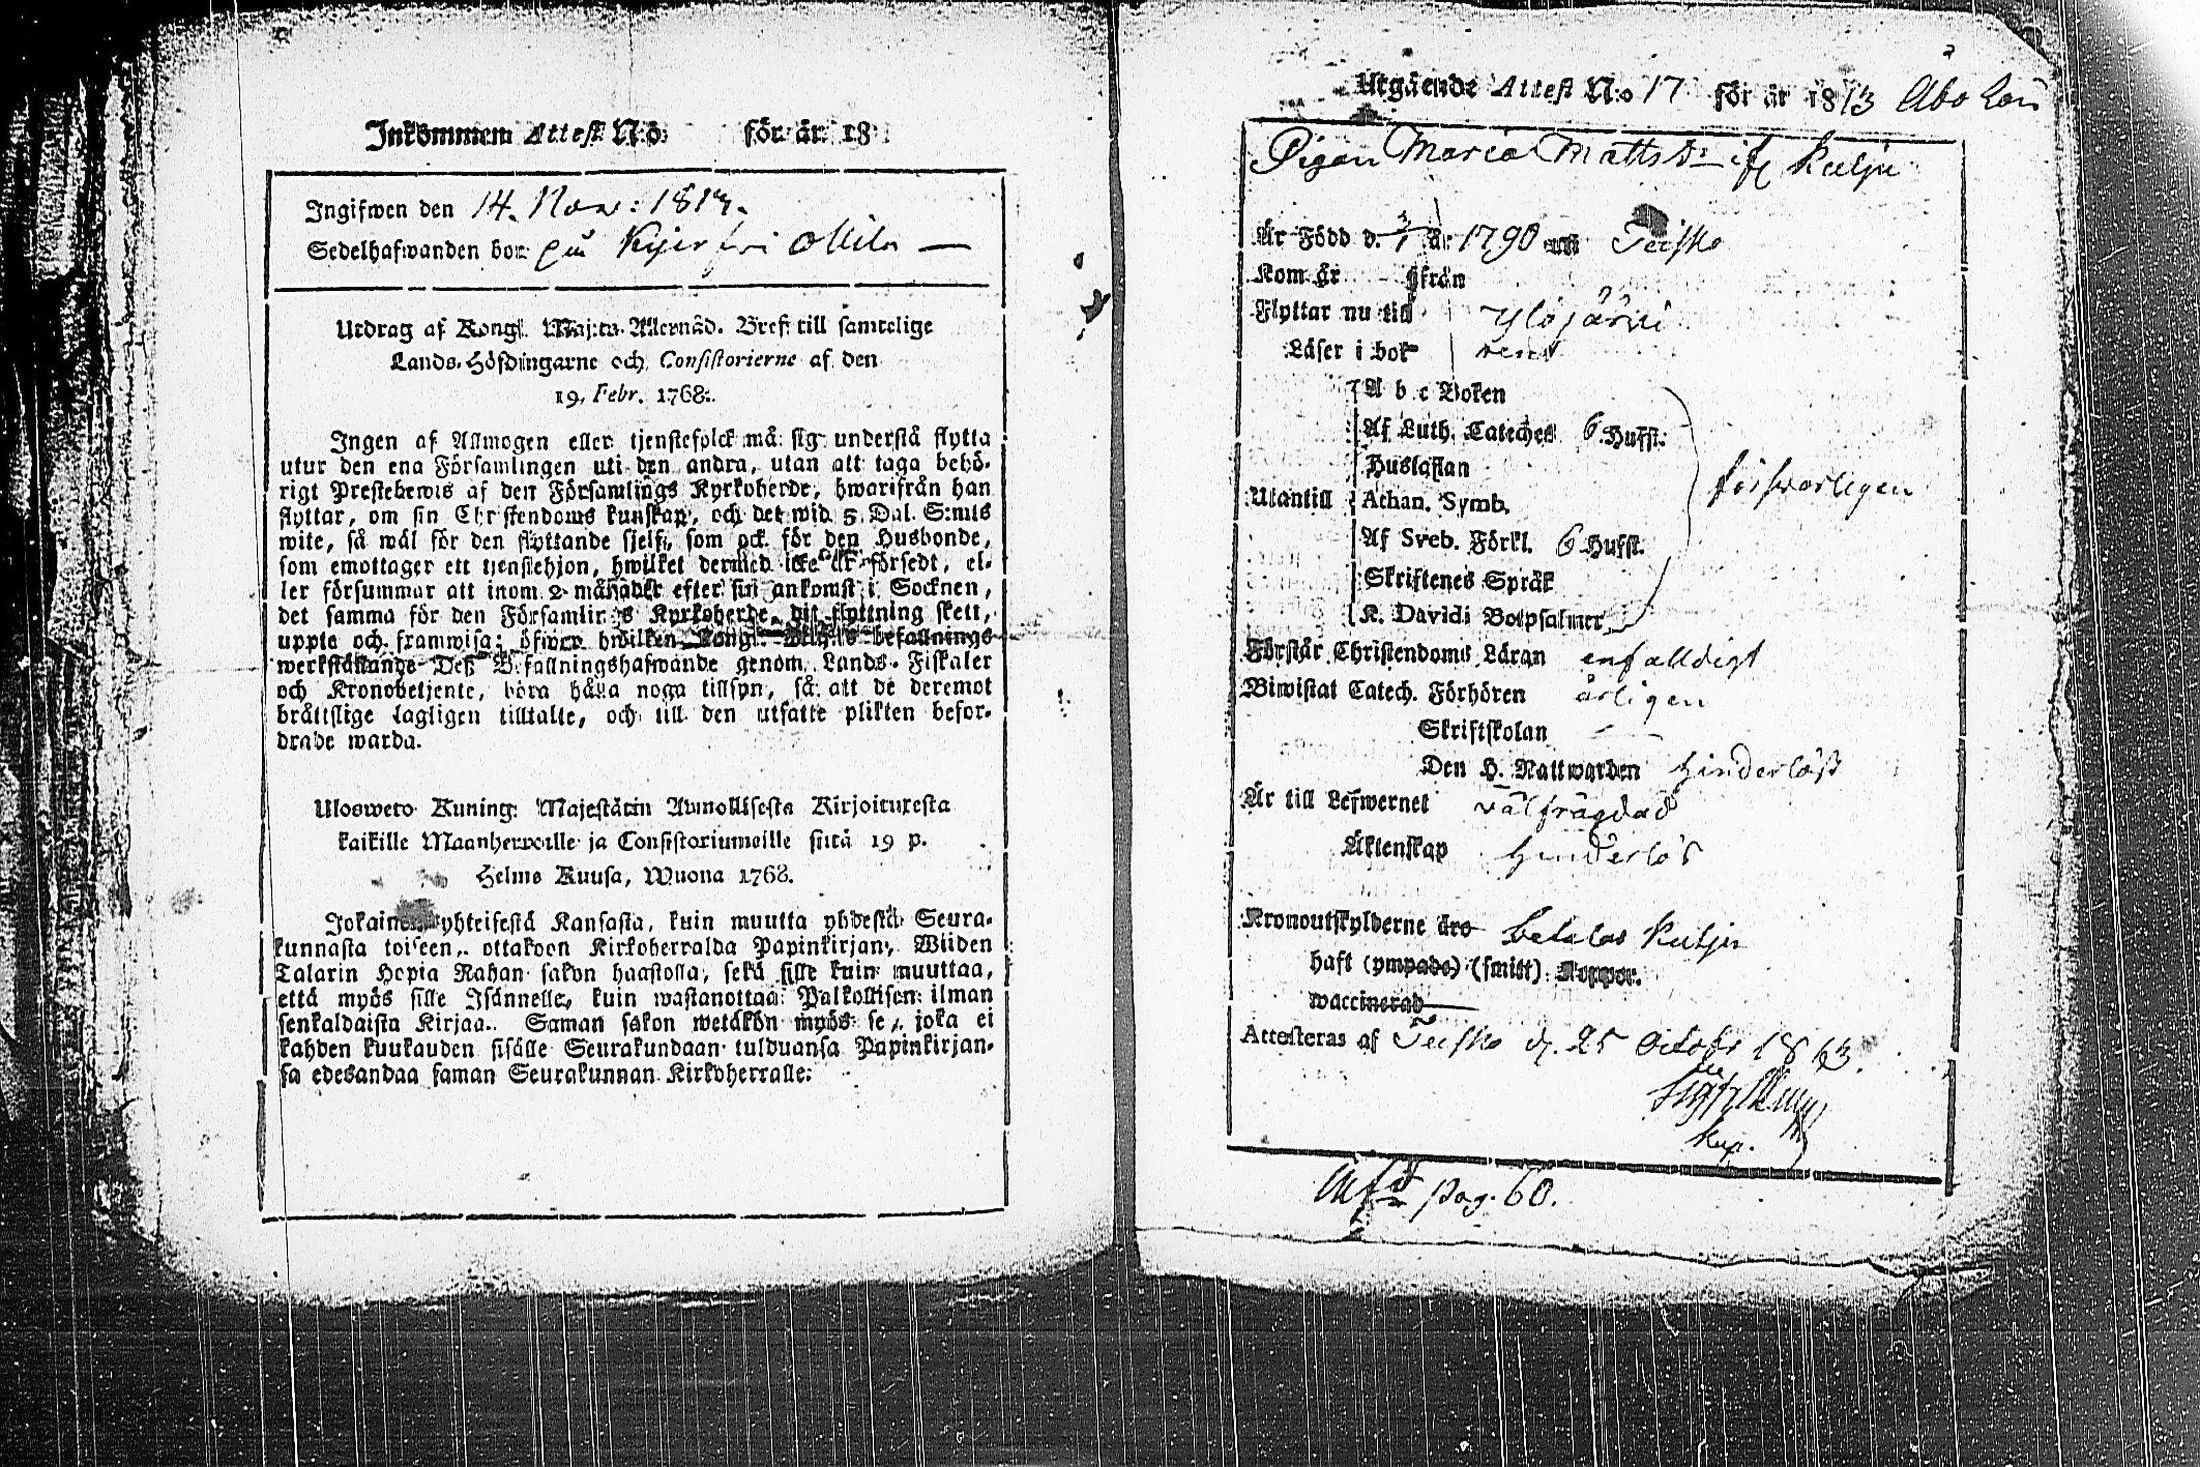 Inkommen Attest N:o för år 18
Ingifwen den 14. Nov: 1813.
Sedelhafwanden bor på Kijerfwi Mila —
Utdrag af Kongl. Maj:ts Allernåd. Bref till samtelige
Lands-Höfdingarne och Consistorierne af den
19. Febr. 1768.
Ingen af Allmogen eller tjenstefolck må sig understå flytta
utur den ena Församlingen uti den andra, utan att taga behö-
rigt Prestebewis af den Församlings Kyrkoherde, hwarifrån han
flyttar, om sin Christendoms kunskap, och det wid 5 Dal. S:mts
wite, så wäl för den flyttande sjelf, som ock för den Husbonde,
som emottager ett tjenstehjon, hwilket dermed icke är försedt, el-
ler försummar att inom 2 månader efter sin ankomst i Socknen,
det samma för den Församlings Kyrkoherde, dit flyttning skett,
uppte och framwisa; öfwer hwilken Kongl. Maj:ts befallnings
werkställande Deß Befallningshafwande genom Lands-Fiskaler
och Kronobetjente, böra hålla noga tillsyn, så att de deremot
bråttslige lagligen tilltalte, och till den utsatte plikten befor-
drade warda.
Ulosweto Kuning: Majestätin Armollisesta Kirjoituxesta
kaikille Maanherroille ja Consistoriumeille siitä 19 p.
Helme Kuusa, Wuona 1768.
Jokainen yhteisestä Kansasta, kuin muutta yhdestä Seura-
kunnasta toiseen, ottakoon Kirkoherralda Papinkirjan, Wiiden
Talarin Hopia Rahan sakon haastolla, sekä sille kuin muuttaa,
että myös sille Isännelle, kuin wastanottaa Palkollisen ilman
senkaldaista Kirjaa. Saman sakon wetäkön myös se, joka ei
kahden kuukauden sisälle Seurakundaan tulduansa Papinkirjan-
sa edesandaa saman Seurakunnan Kirkoherralle.
Utgående Attest N:o 17 för år 1813 Åbo Län
Pigan Maria Mattsdr if Kulju
Är Född d. 3/1 år 1790 uti Teisko
Kom år ifrån
Flyttar nu till Ylöjärvi
Läser i bok rent
A b c Boken
Af Luth. Cateches 6 Hufst.
Hustaflan
Utantill Athan. Symb. försvarligen
Af Sveb. Förkl. 6 Hufst.
Skriftenes Språk
K. Davids Botpsalmer
Förstår Christendoms Läran enfalldigt
Biwistat Catech. Förhören årligen
Skriftskolan
Den H. Nattwarden hinderlöst
Är till Lefwernet välfrägdad
Äktenskap hinderlös
Kronoutskylderne äro betalas Kulju
haft (ympade) (smitt) Koppor.
waccinerad
Attesteras af Teisko d. 25 Octobr 1813.
Kap.
pag. 60.